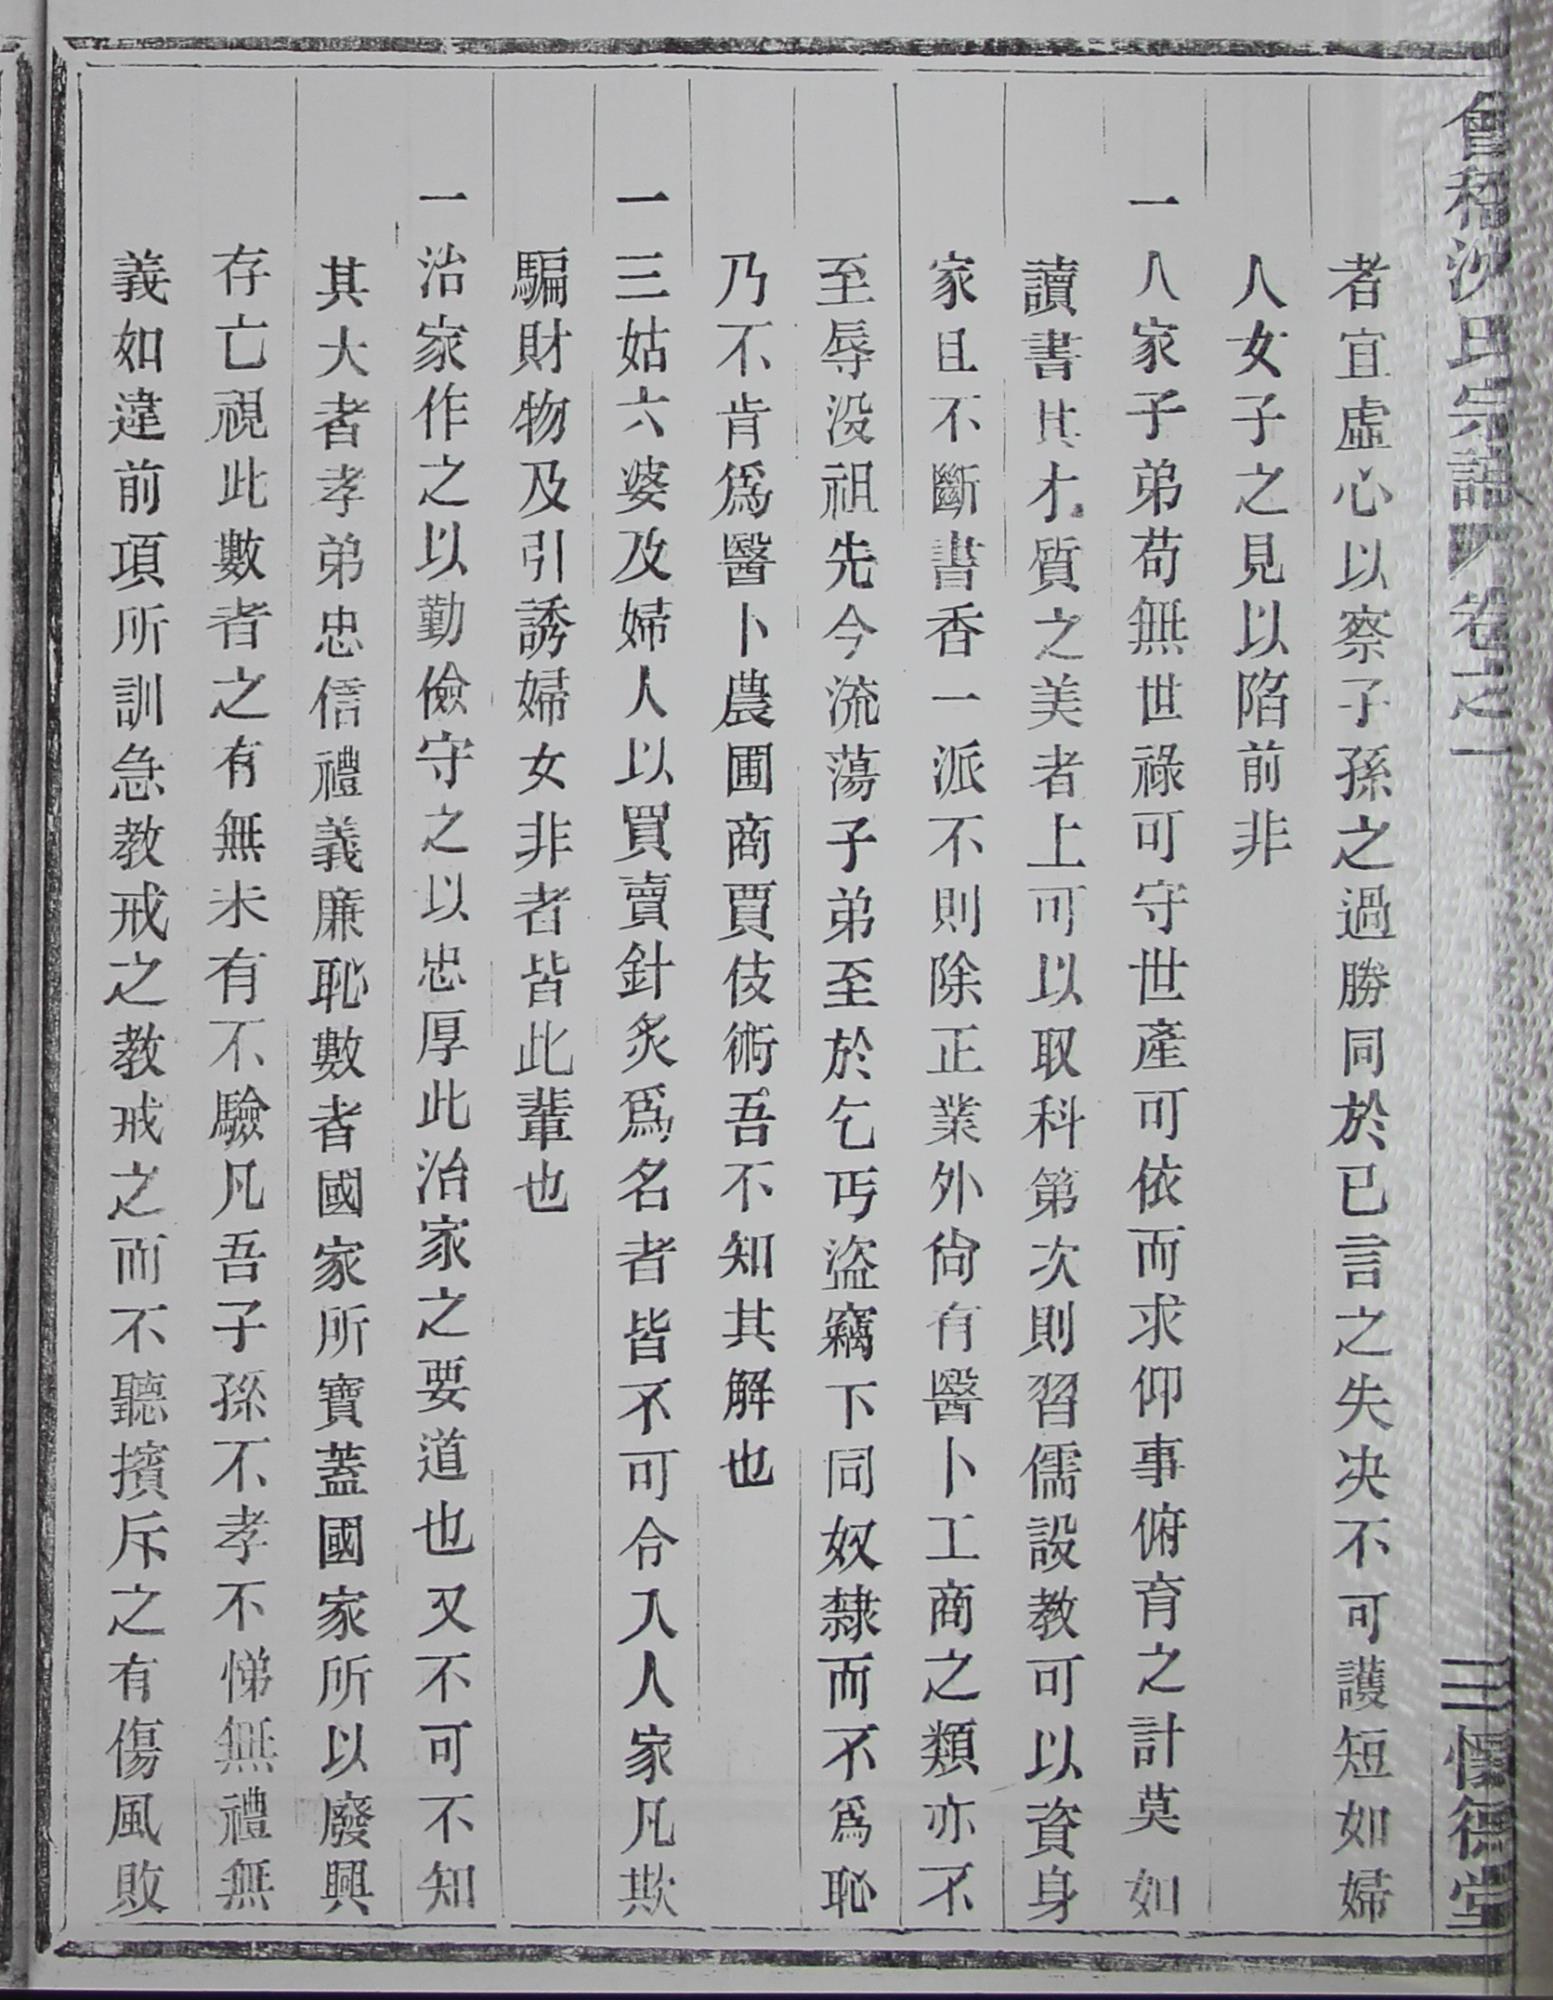 會稽沈氏宗譜 卷之一 三 懷德堂
者宜虛心以察子孫之過勝同於已言之失决不可護短如婦
人女子之見以陷前非
一人家子弟苟無世祿可守世產可依而求仰事俯育之計莫如
讀書其才質之美者上可以取科第次則習儒設教可以資身
家且不斷書香一派不則除正業外尙有醫卜工商之類亦不
至辱没祖先今流蕩子弟至於乞丐盜竊下同奴隸而不爲恥
乃不肯爲醫卜農圃商賈伎術吾不知其解也
一三姑六婆及婦人以買賣針炙爲名者皆不可令入人家凡欺
騙財物及引誘婦女非者皆此輩也
一治家作之以勤儉守之以忠厚此治家之要道也又不可不知
其大者孝弟忠信禮義廉恥數者國家所寶蓋國家所以廢興
存亡視此數者之有無未有不驗凡吾子孫不孝不悌無禮無
義如違前項所訓急教戒之教戒之而不聽擯斥之有傷風敗